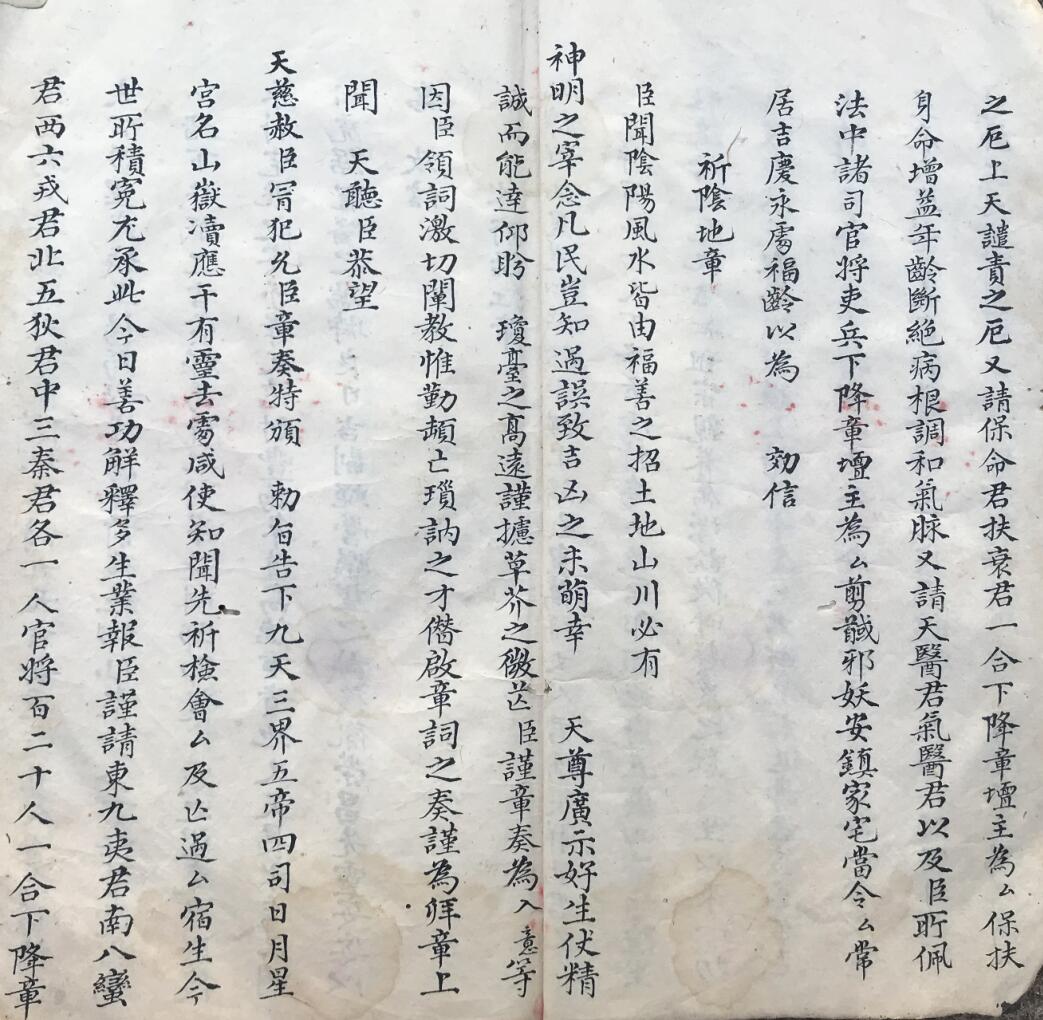 之厄上天譴責之厄又請保命君扶衰君一合下降章壇主為厶保扶
身命增益年齡斷絕病根調和氣脉又請天醫君氣醫君以及臣所佩
法中諸司官將吏兵下降章壇主為厶剪馘邪妖安鎮家宅當令厶常
居吉慶永膺福齡以為 効信
祈陰地章
臣聞陰陽風水皆由福善之招土地山川必有
神明之宰念凡民豈知過誤致吉凶之未萌幸 天尊廣示好生伏精
誠而能達仰盻 瓊臺之髙遠謹攄草芥之微芒臣謹章奏為入意等
因臣領詞激切闡教惟勤頗亡瑣訥之才僭啟章詞之奏謹為拜章上
聞 天聽臣恭望
天慈赦臣冒犯允臣章奏特頒 勅旨告下九天三界五帝四司日月星
宮名山嶽凟應干有靈去䖏咸使知聞先祈檢會厶及亡過厶宿生今
世所積寃尤承此今日善功解釋多生業報臣謹請東九夷君南八蠻
君西六戎君北五狄君中三秦君各一人官將百二十人一合下降章